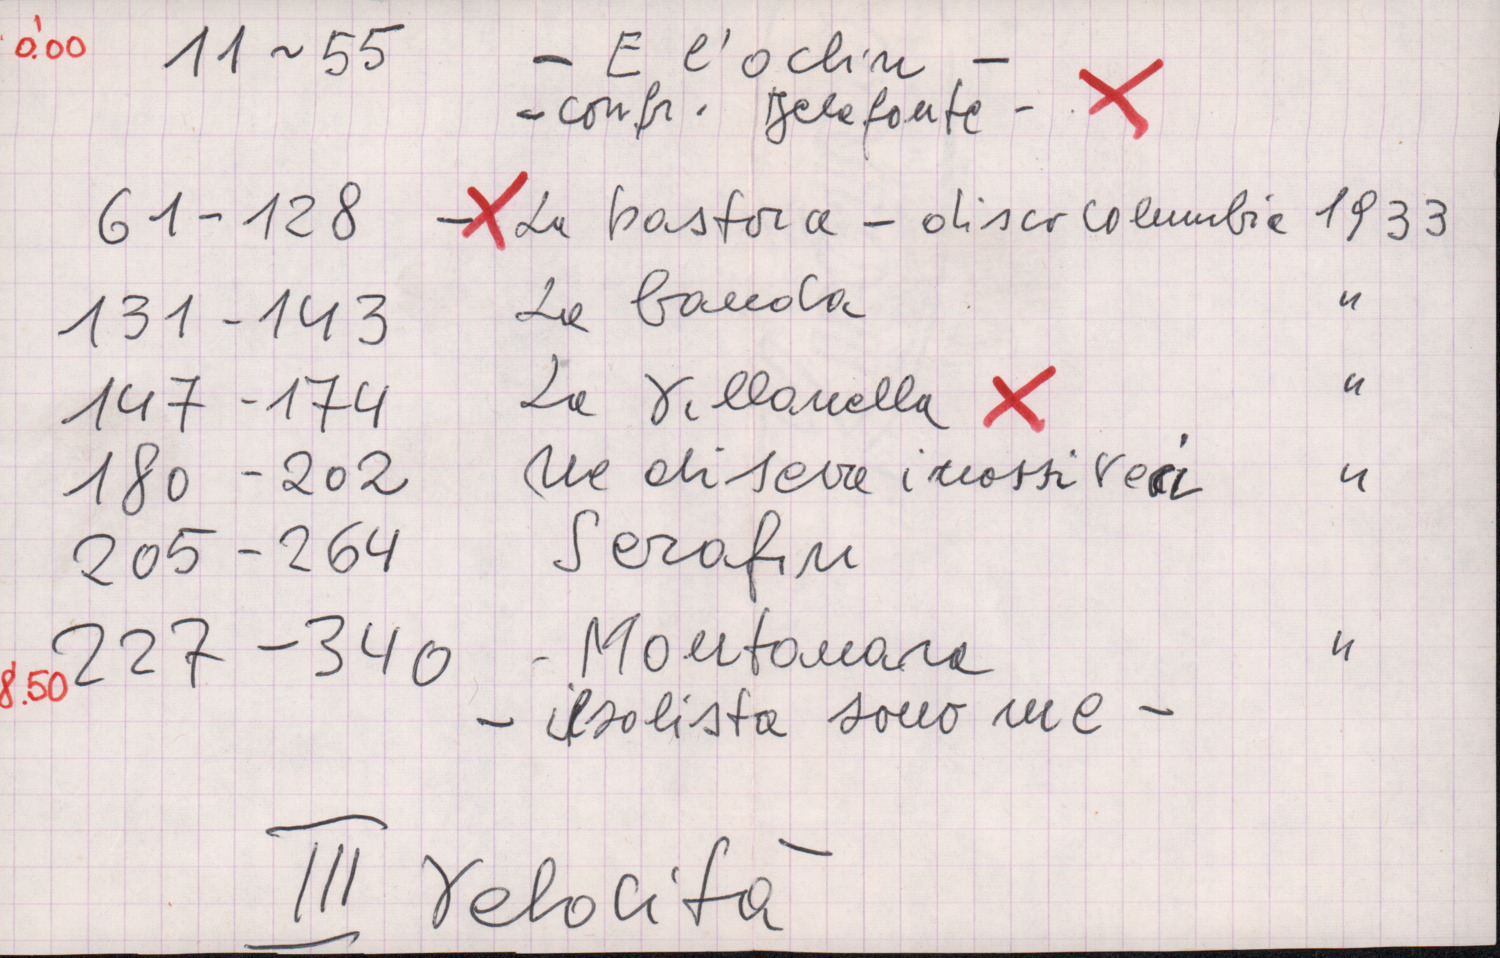 0'.00 11 ~ 55 - E l'ochin -
- confr. Belafonte -
61 - 128 - La pastora - disco columbia 1933
131 - 143 La banda "
147 - 174 La Villanella "
180 - 202 Me diseva i nossi veci "
205 - 264 Serafin
227 - 340 - Montanara "
8'.50
- il solista sono me -
III velocità